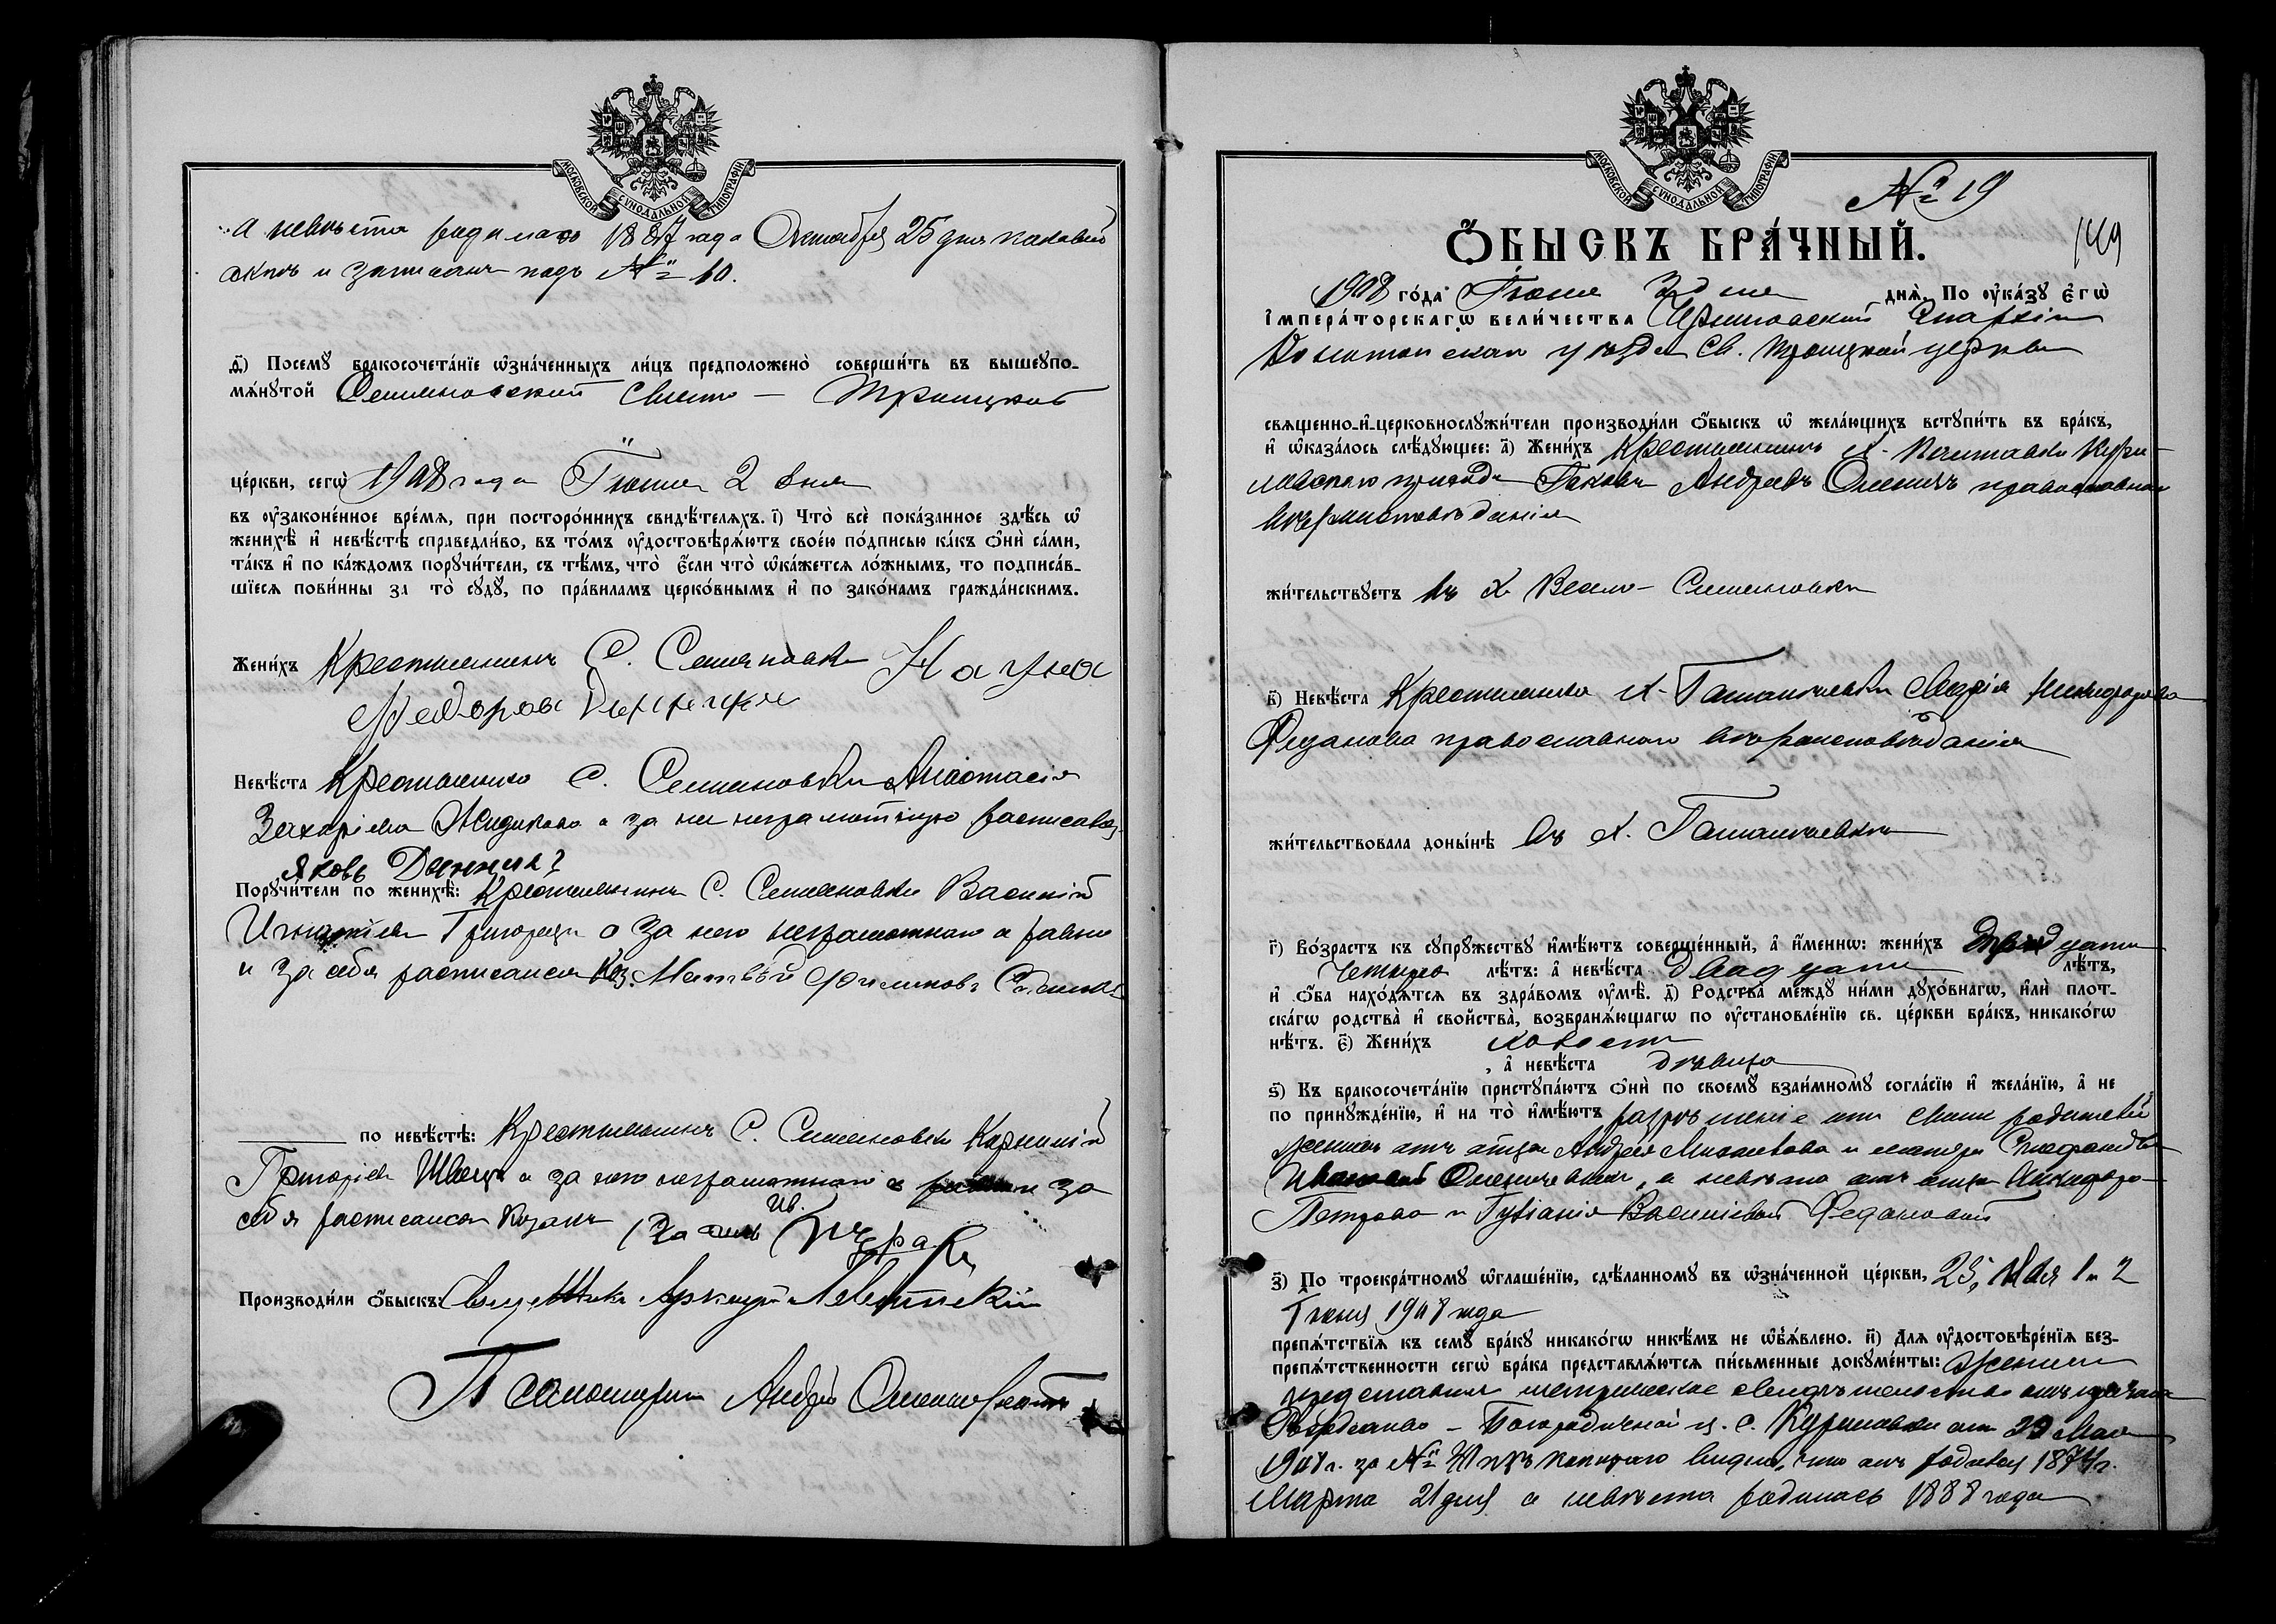 МОСКОВСКОЙ СѴНОДАЛЬНОЙ ТИПОГРАФІИ
а невѣста родилась 1887 года Октября 25 дня каковой
актъ и записанъ подъ № 10.
ѳ҃) Посемꙋ бракосочета́нїе ѡ҆зна́ченныхъ ли́цъ предположено̀ соверши́ть въ вышеꙋпо-
мѧ́нꙋтой Семеновской Свято - Троицкой
це́ркви, сегѡ̀ 1908 года Іюня 2 дня
въ ᲂу҆законе́нное вре́мѧ, при посторо́ннихъ свидѣ́телѧхъ. і҃) Что̀ всѐ пока́занное здѣ́сь ѡ҆
женихѣ̀ и҆ невѣ́стѣ справедли́во, въ то́мъ ᲂу҆достовѣрѧ́ютъ свое́ю по́дписью ка́къ ѻ҆нѝ са́ми,
та́къ и҆ по ка́ждомъ порꙋчи́тели, съ тѣ́мъ, что̀ є҆́сли что̀ ѡ҆ка́жетсѧ ло́жнымъ, то подписа́в-
шїесѧ пови́нны за то̀ сꙋдꙋ̀, по пра́виламъ церко́внымъ и҆ по зако́намъ гражда́нскимъ.
Жени́хъ Крестьянинъ С. Семеновки Наума
Федоровъ
Невѣ́ста Крестьянка С. Семеновки Анастасія
Захаріева а за не неграмотную росписався
Яковъ
Порꙋчи́тели по женихѣ̀: Крестьянинъ С. Семеновки Василій
Игнатіевъ а за него неграмотнаго и равно
и за себя росписался Каз. Матвѣй Филимоновъ
по невѣ́стѣ: Крестьянинъ С. Семеновки Корнилій
Григоріевъ Швецъ а за него неграмотнаго и за
себя росписался Козакъ Ив.
Производи́ли ѻ҆́быскъ: Священникъ
Псаломщикъ Андрей
МОСКОВСКОЙ СѴНОДАЛЬНОЙ ТИПОГРАФІИ
№ 19
149
Ѻ҆́БЫСКЪ БРА́ЧНЫЙ.
1908 го́да Іюня 2 дня днѧ̀. По ᲂу҆ка́зꙋ Є҆гѡ̀
І҆мпера́торскагѡ вели́чества Черниговской Епархіи
Конотопскаго уѣзда Св. Троицкой церкви
свѧщенно-и҆-церковнослꙋжи́тели производи́ли ѻ҆́быскъ ѡ҆ жела́ющихъ встꙋпи́ть въ бра́къ,
и҆ ѡ҆каза́лось слѣ́дꙋющее: а҃) Жени́хъ Крестьянинъ х. Кури-
ловскаго прихода Яковъ Андреевъ православнаго
вѣроисповѣданія
жи́тельствꙋетъ въ х. Семеновки
в҃) Невѣ́ста Крестьянка х. Марія Никифорова
Феданова православнаго вѣроисповѣданія
жи́тельствовала донынѣ̀ въ х.
г҃) Во́зрастъ къ сꙋпрꙋ́жествꙋ и҆мѣ́ютъ соверше́нный, а҆̀ и҆́меннѡ: жени́хъ тридцати
четыре лѣ́тъ: а҆̀ невѣ́ста двадцати лѣ́тъ,
и҆ ѻ҆́ба нахо́дѧтсѧ въ здра́вомъ ᲂу҆мѣ̀. д҃) Родства̀ междꙋ̀ ни́ми дꙋхо́внагѡ, и҆лѝ плот-
ска́гѡ родства̀ и҆ свойства̀, возбранѧ́ющагѡ по ᲂу҆становле́нїю св. це́ркви бра́къ, никако́гѡ
нѣ́тъ. є҃) Жени́хъ холостъ
, а҆̀ невѣ́ста дѣвица
ѕ҃) Къ бракосочета́нїю пристꙋпа́ютъ ѻ҆нѝ по своемꙋ̀ взаи́мномꙋ согла́сїю и҆ жела́нїю, а҆̀ не
по принꙋжде́нїю, и҆ на то̀ и҆мѣ́ютъ разрѣшеніе отъ своихъ родителей
женихъ отъ отца Андрея Михайлова и матери
Ивановой, а невѣста отъ отца Никифора
Петрова и Васильевой Федановой
з҃) По троекра́тномꙋ ѡ҆глаше́нїю, сдѣ́ланномꙋ въ ѡ҆зна́ченной це́ркви, 25, Мая 1 и 2
Іюня 1908 года
препѧ́тствїѧ къ семꙋ̀ бра́кꙋ никако́гѡ никѣ́мъ не ѡ҆б̾ѧ́влено. и҃) Длѧ ᲂу҆достовѣре́нїѧ без-
препѧ́тственности сегѡ̀ бра́ка представлѧ́ютсѧ пи́сьменные докꙋме́нты: Женихъ
представилъ метрическое свидѣтельство отъ причта
Рождество - Богородичной ц. с. Куриловки отъ 29 Мая
1908 г. за № изъ котораго видно, что онъ родился 1874 г.
Марта 21 дня а невѣста родилась 1888 года